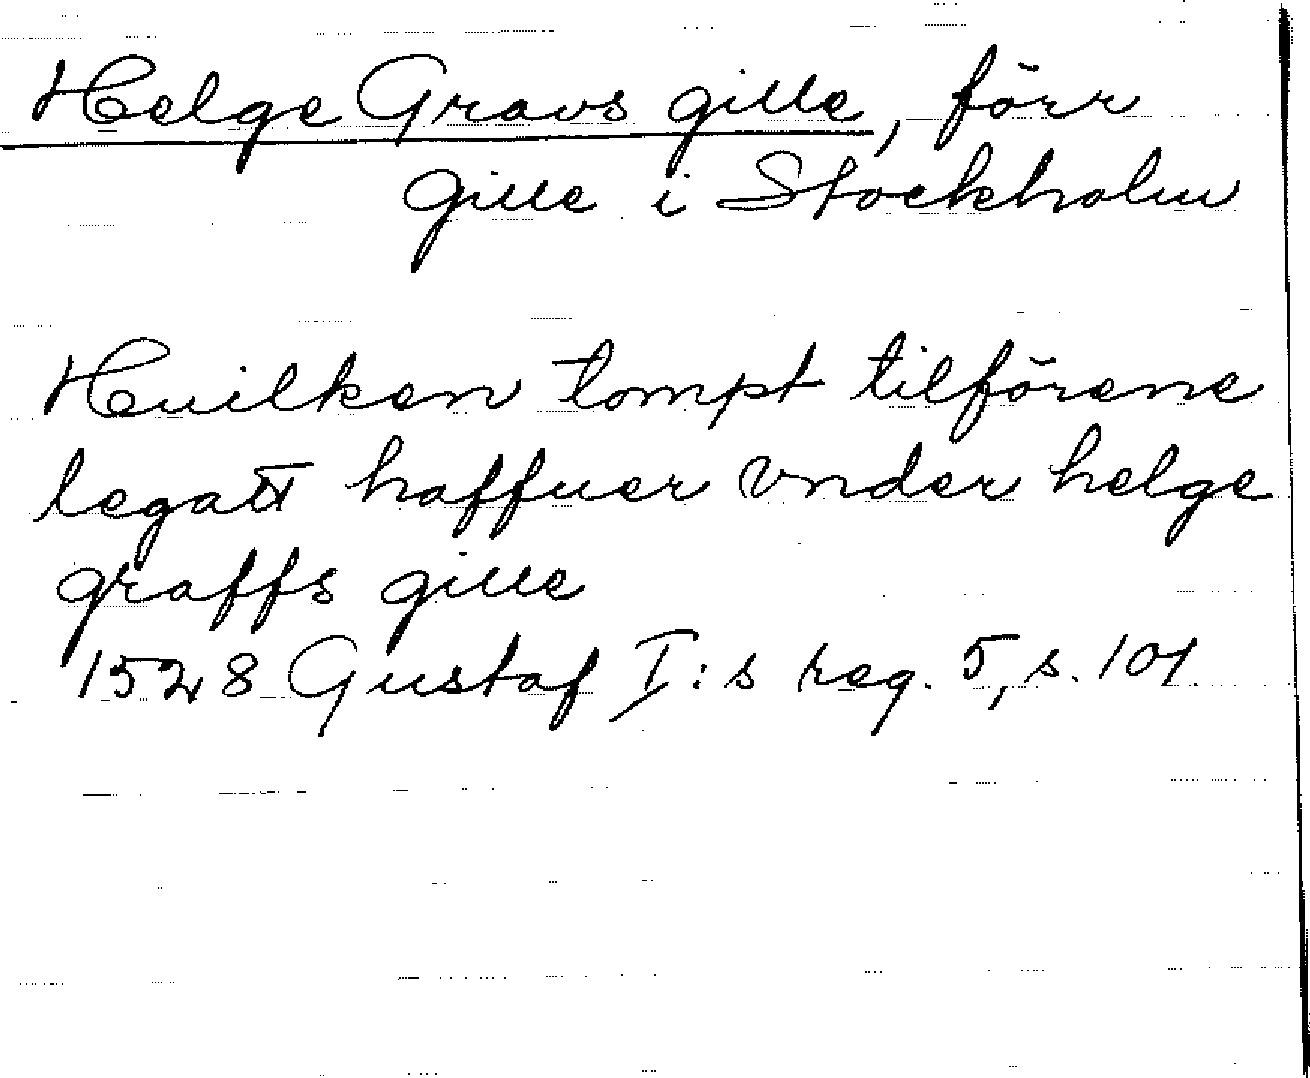 Helge Gravs gille, förr
gille i Stockholm
Huilken tompt tilförene
legatt haffuer vnder helge
graffs gille
1528 Gustaf I:s reg. 5, s. 101